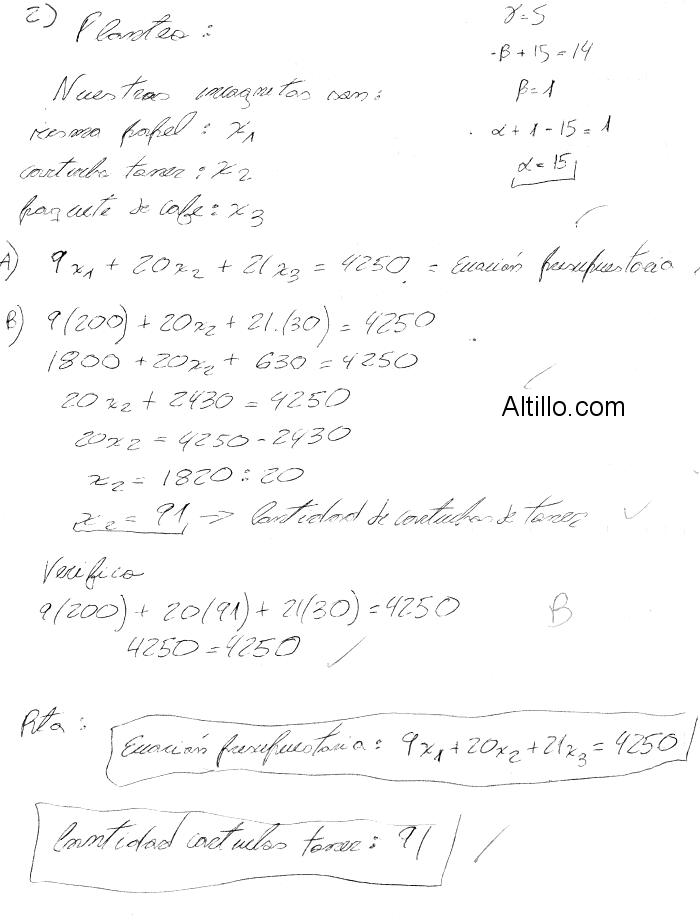 2) Planteo:
γ=5
-β + 15 = 14
β=1
α + 1 - 15 = 1
α = 15
Nuestras incognitas son:
resma papel : x1
cartucho toner : x2
paquete de cafe : x3
A) 9x1 + 20x2 + 21x3 = 4250 = Ecuación presupuestaria
B) 9(200) + 20x2 + 21.(30) = 4250
1800 + 20x2 + 630 = 4250
20x2 + 2430 = 4250
20x2 = 4250 - 2430
x2 = 1820 : 20
x2 = 91 → Cantidad de cartuchos de toner
Altillo.com
Verifico
9(200) + 20(91) + 21(30) = 4250
4250 = 4250
B
Rta :
Ecuación presupuestaria : 9x1 + 20x2 + 21x3 = 4250
Cantidad cartuchos toner : 91